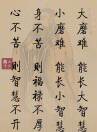 大磨难 能长大智慧
小磨难 能长小智慧
身不苦 则福禄不厚
心不苦 则智慧不开